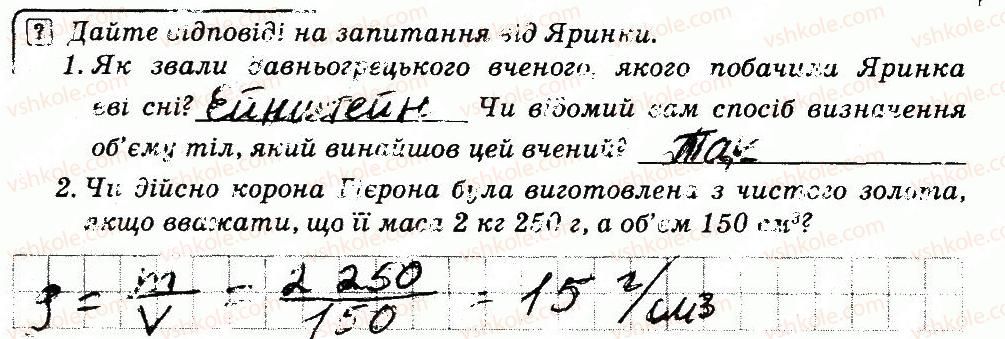 ? Дайте відповіді на запитання від Яринки.
1. Як звали давньогрецького вченого, якого побачила Яринка
вві сні? Ейнштейн Чи відомий вам спосіб визначення
об'єму тіл, який винайшов цей вчений? Так
2. Чи дійсно корона Гієрона була виготовлена з чистого золота,
якщо вважати, що її маса 2 кг 250 г, а об'єм 150 см³?
ρ = m/V = 2 250/150 = 15 г/см3